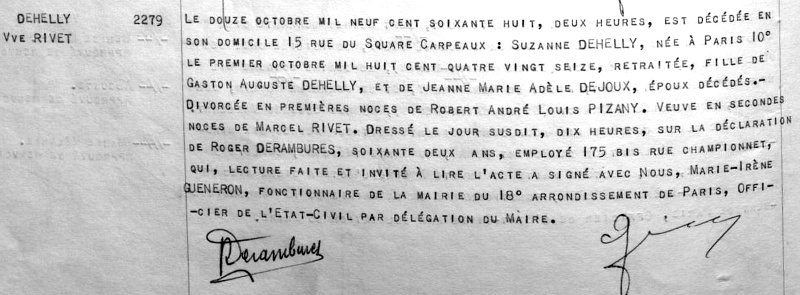 DEHELLY 2279
Vve RIVET
Le douze octobre mil neuf cent soixante huit, deux heures, est décédée en
son domicile 15 rue du Square Carpeaux : Suzanne DEHELLY, née à Paris 10°
le premier octobre mil huit cent quatre vingt seize, retraitée, fille de
Gaston Auguste DEHELLY, et de Jeanne Marie Adèle DEJOUX, époux décédés.-
Divorcée en premières noces de Robert André Louis PIZANY. Veuve en secondes
noces de Marcel RIVET. Dressé le jour susdit, dix heures, sur la déclaration
de Roger DERAMBURES, soixante deux ans, employé 175 bis rue championnet,
qui, lecture faite et invité à lire l'acte a signé avec Nous, Marie-Irène
GUENERON, fonctionnaire de la mairie du 18° arrondissement de Paris, Offi-
-cier de l'Etat-Civil par délégation du Maire.
Derambures